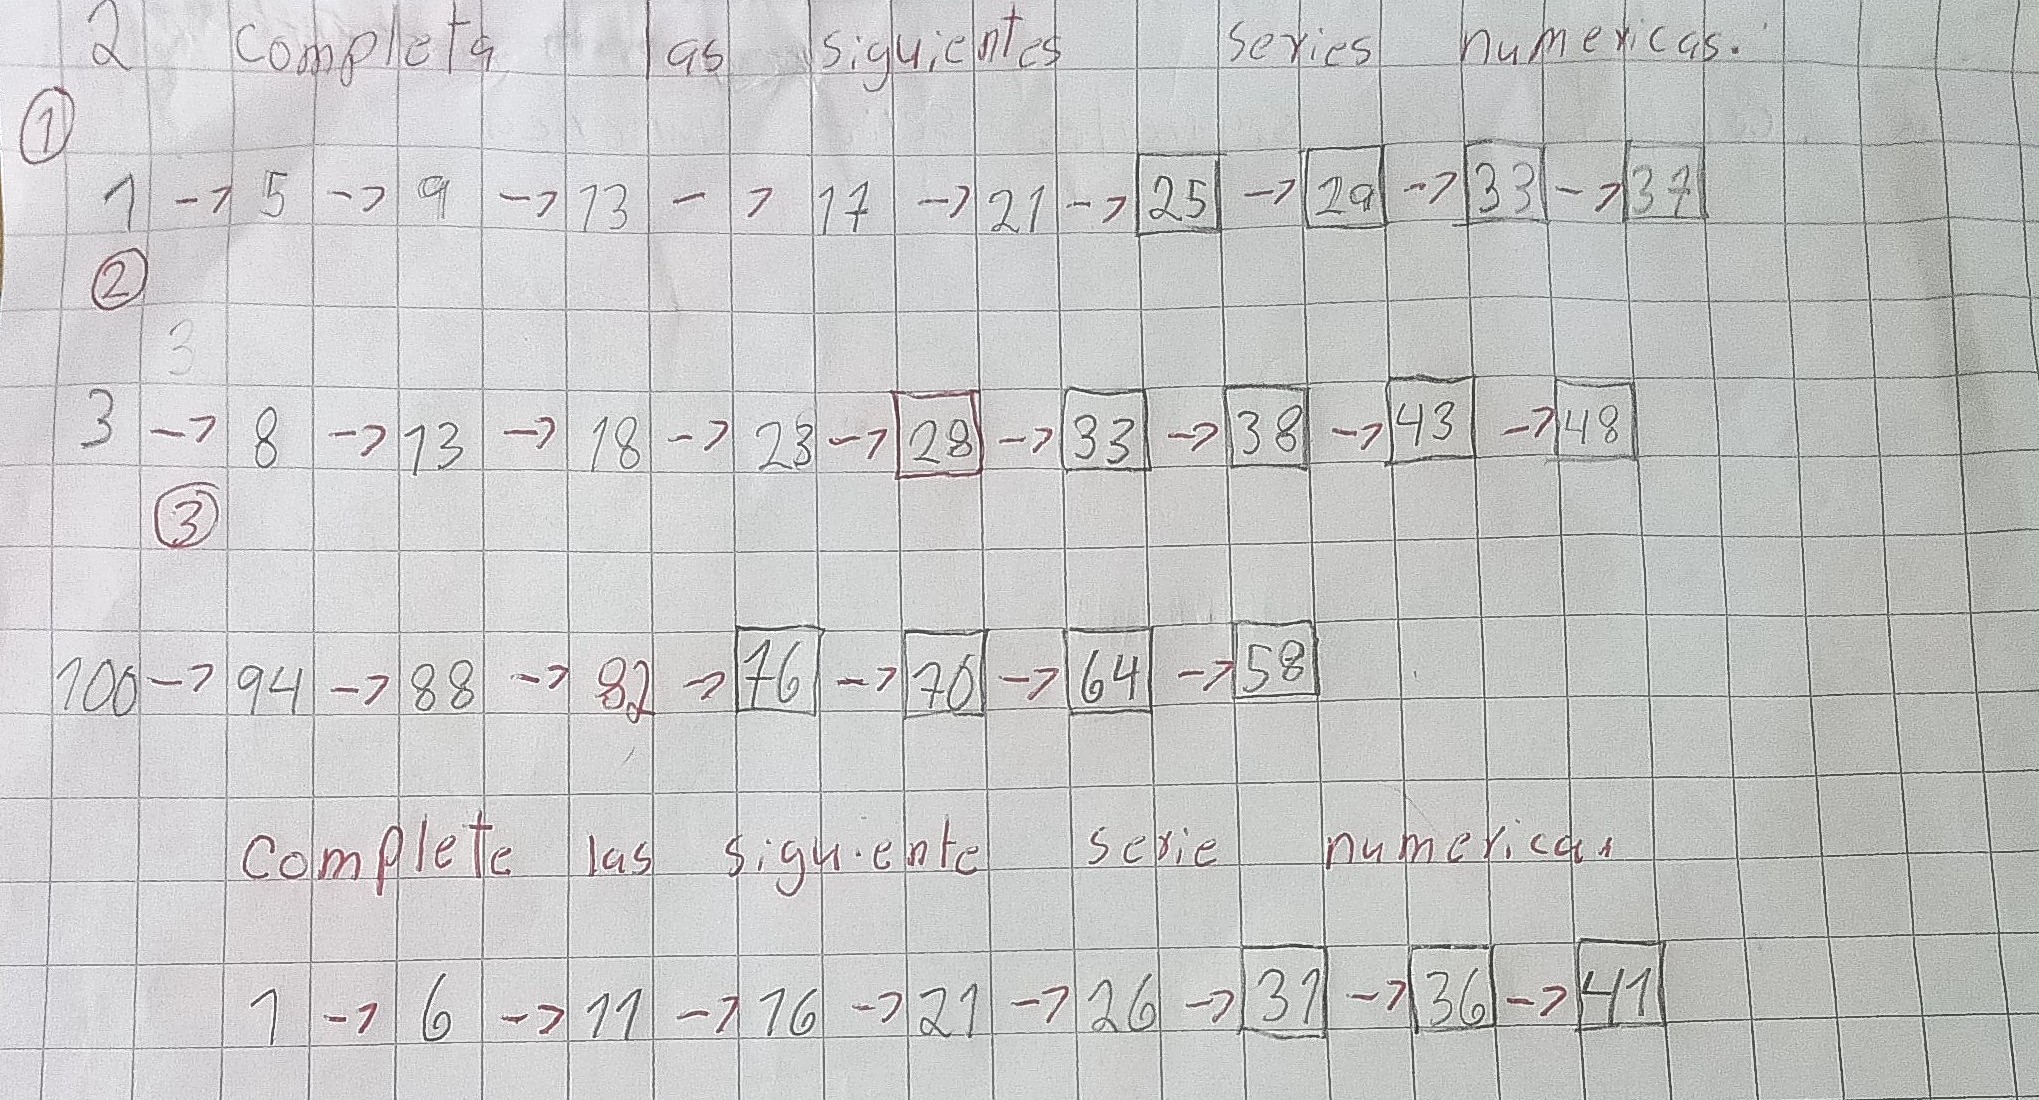 2 completa las siguientes series numericas.
①
1 -> 5 -> 9 -> 13 -> 17 -> 21 -> 25 -> 29 -> 33 -> 37
②
3
3 -> 8 -> 13 -> 18 -> 23 -> 28 -> 33 -> 38 -> 43 -> 48
③
100 -> 94 -> 88 -> 82 -> 76 -> 70 -> 64 -> 58
complete las siguiente serie numericas
1 -> 6 -> 11 -> 16 -> 21 -> 26 -> 31 -> 36 -> 41